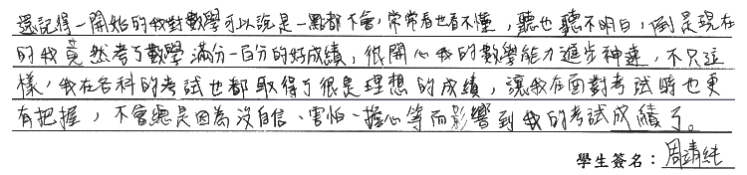 還記得一開始的我對數學可以說是一點都不會,常常看也看不懂,聽也聽不明白,倒是現在
的我竟然考了數學滿分一百分的好成績,很開心我的數學能力進步神速,不只這
樣,我在各科的考試也都取得了很是理想的成績,讓我在面對考試時也更
有把握,不會總是因為沒自信、害怕、擔心等而影響到我的考試成績了。
學生簽名:周靖純